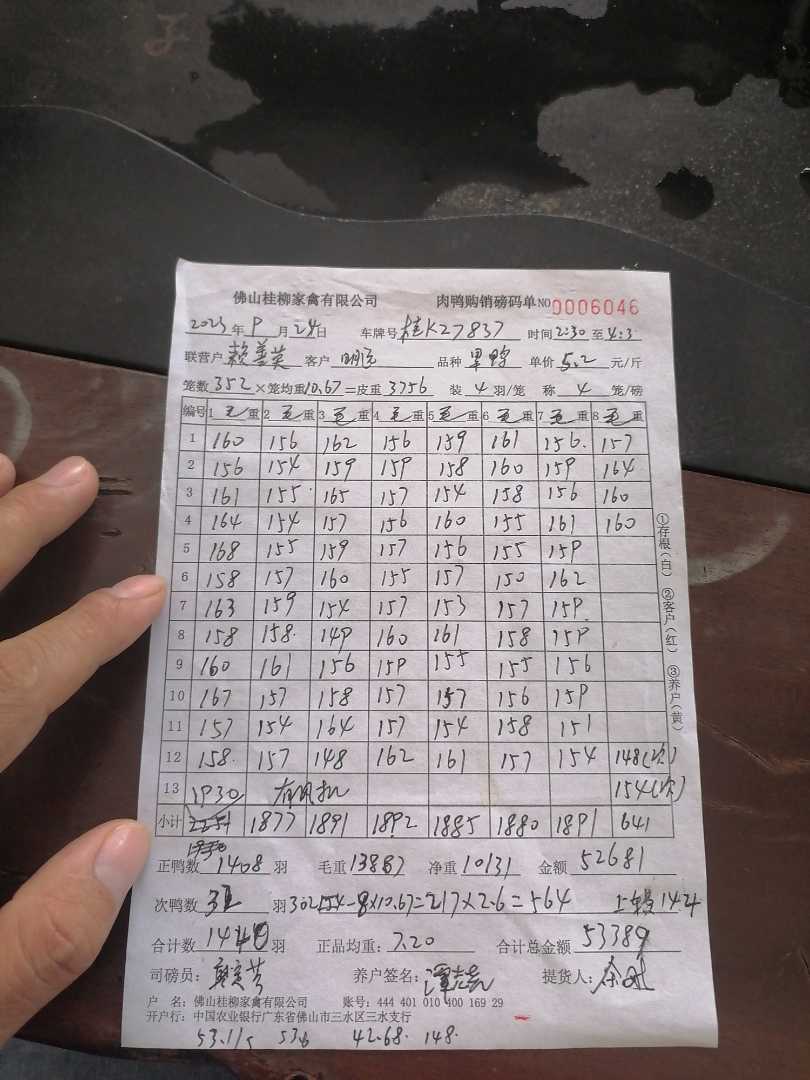 佛山桂柳家禽有限公司 肉鸭购销磅码单 NO 0006046
2023年 9月 24日 车牌号 桂K27837 时间 2:30 至 4:3
联营户 赖善英 客户 品种 单价 5.2 元/斤
笼数 352 ×笼均重 10.67 =皮重 3756 装 4 羽/笼 称 4 笼/磅
编号 1 毛重 2 毛重 3 毛重 4 毛重 5 毛重 6 毛重 7 毛重 8 毛重
1 160 156 162 156 159 161 156 157
2 156 154 159 159 158 160 159 164
3 161 155 165 157 154 158 156 160
4 164 154 157 156 160 155 161 160
5 168 155 159 157 156 155 159
6 158 157 160 155 157 150 162
7 163 159 154 157 153 157 159
8 158 158 149 160 161 158 159
9 160 161 156 159 155 155 156
10 167 157 158 157 157 156 159
11 157 154 164 157 154 158 151
12 158 157 148 162 161 157 154 148(次)
13 1930 154(次)
小计 1877 1891 1892 1885 1880 1891 641
正鸭数 1408 羽 毛重 13887 净重 10131 金额 52681
次鸭数 32 羽 302 -8×10.67=217×2.6=564 144
合计数 1440 羽 正品均重: 7.20 合计总金额 53389
司磅员: 养户签名: 提货人:
户 名: 佛山桂柳家禽有限公司 账号: 444 401 010 400 169 29
开户行: 中国农业银行广东省佛山市三水区三水支行
53.115 42.68. 148.
①存根(白) ②客户(红) ③养户(黄)